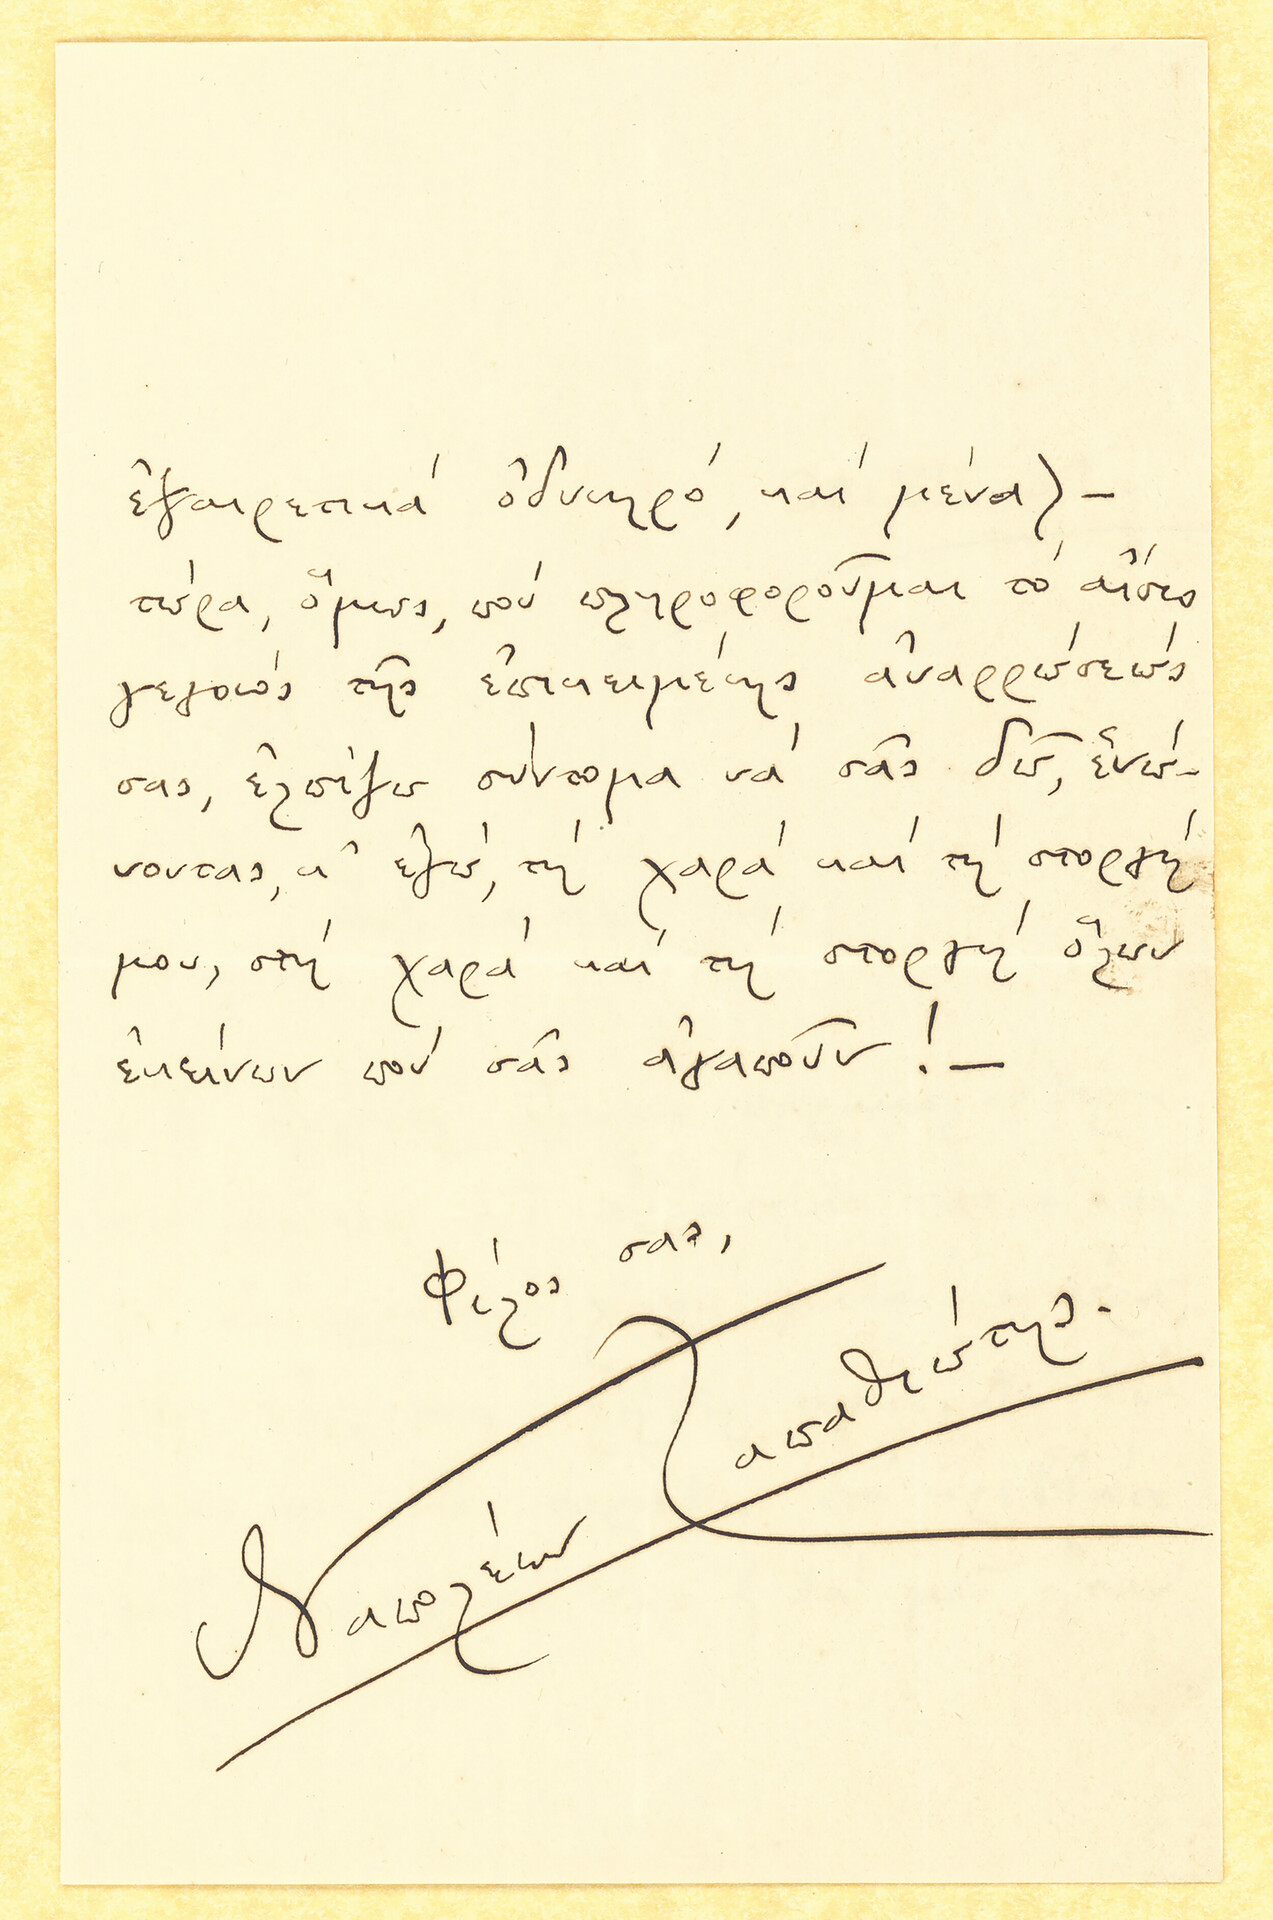 ἐξαιρετικά ὀδυνηρό, καί μένα) –
τώρα, ὅμως, πού πληροφοροῦμαι τό αἴσιο
γεγονός τῆς ἐπικειμένης ἀναρρώσεώς
σας, ἐλπίζω σύντομα νά σᾶς δῶ, ἑνώ-
νοντας, κ' ἐγώ, τή χαρά καί τή στοργή
μου, στή χαρά καί τή στοργή ὅλων
ἐκείνων πού σᾶς ἀγαποῦν! –
Φίλος σας,
Ναπολέων Λαπαθιώτης.